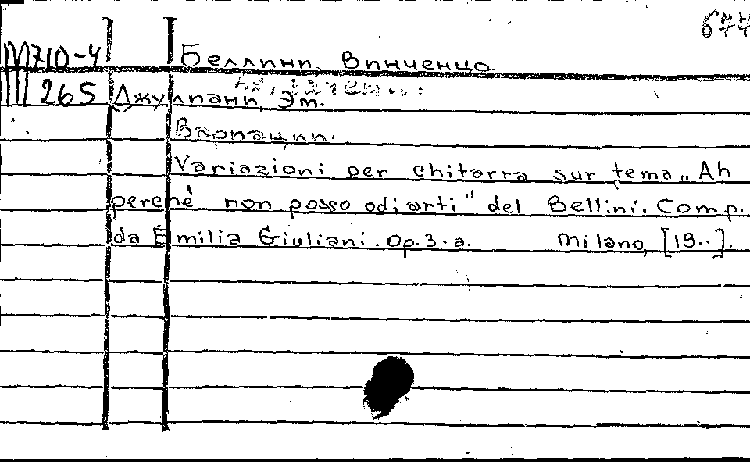 677
M710-4 Беллини, Винченцо
265 Джулиани, Эм.
Вариации.
Variazioni per chitarra sur tema „Ah
perchè non posso odiarti" del Bellini. Comp.
da Emilia Giuliani. Op. 3. a. Milano, [19..].